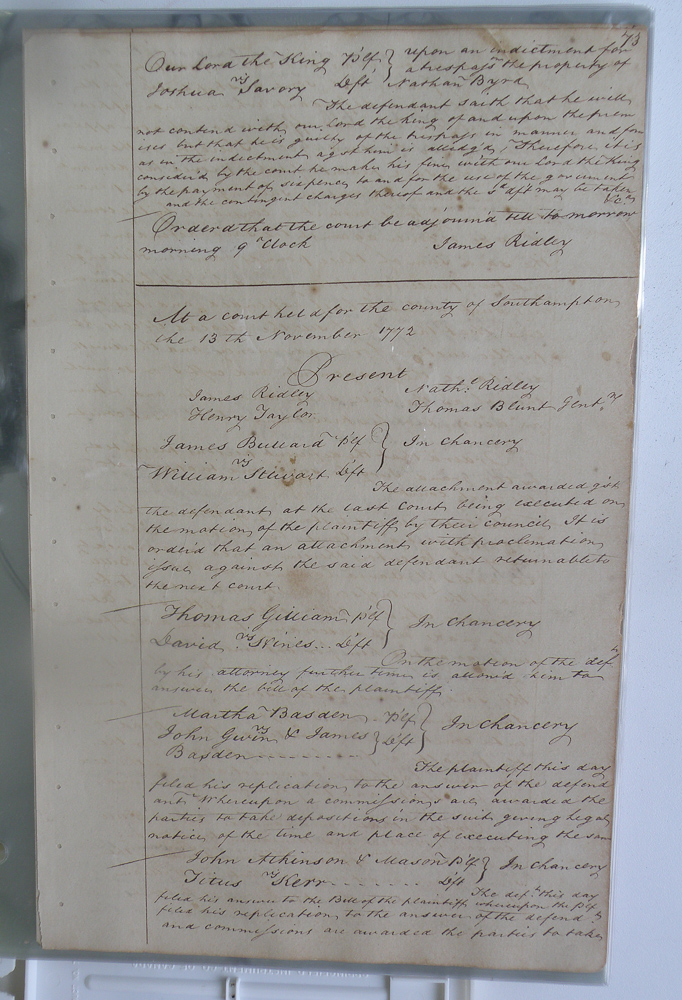 73
Our Lord the King Plf } upon an indictment for
vs a trespass the property of
Joshua Savory Deft Nathan Byrd
The defendant saith that he will
not contend with our Lord the King of and upon the prem
ises but that he is guilty of the trespass in manner and form
as in the indictment agst him is alledg'd, Therefore it is
consider'd by the court he makes his fine with our Lord the King
by the payment of sixpence to and for the use of the government
and the contingent charges thereof and the sd deft may be taken
&c
Orderd that the court be adjournd till to morrow
morning 9 oClock James Ridley
At a court held for the county of Southampton
the 13th November 1772
Present
James Ridley Nathl Ridley
Henry Taylor Thomas Blunt Gent
James Bullard Plf } In Chancery
vs
William Stewart Deft
The attachment awarded agst
the defendant at the last court being executed on
the motion of the plaintiff by their council It is
order'd that an attachment with proclamation
issue against the said defendant returnable to
the next court.
Thomas Gilliam Plf } In Chancery
David vs Wines.. Deft
On the motion of the def
by his attorney further time is allow'd him to
answer the bill of the plaintiff.
Martha Basden Plf } In Chancery
John Gwin vs & James } Deft
Basden
The plaintiff this day
filed his replication to the answer of the defend
ant Whereupon a commissions are awarded the
parties to take depositions in the suit giving legal
notice of the time and place of executing the same
John Atkinson & Mason Plf } In Chancery
Titus vs Kerr Deft
The deft this day
filed his answer to the Bill of the plaintiff whereupon the Plf
filed his replication to the answer of the defend
and commissions are awarded the parties to take